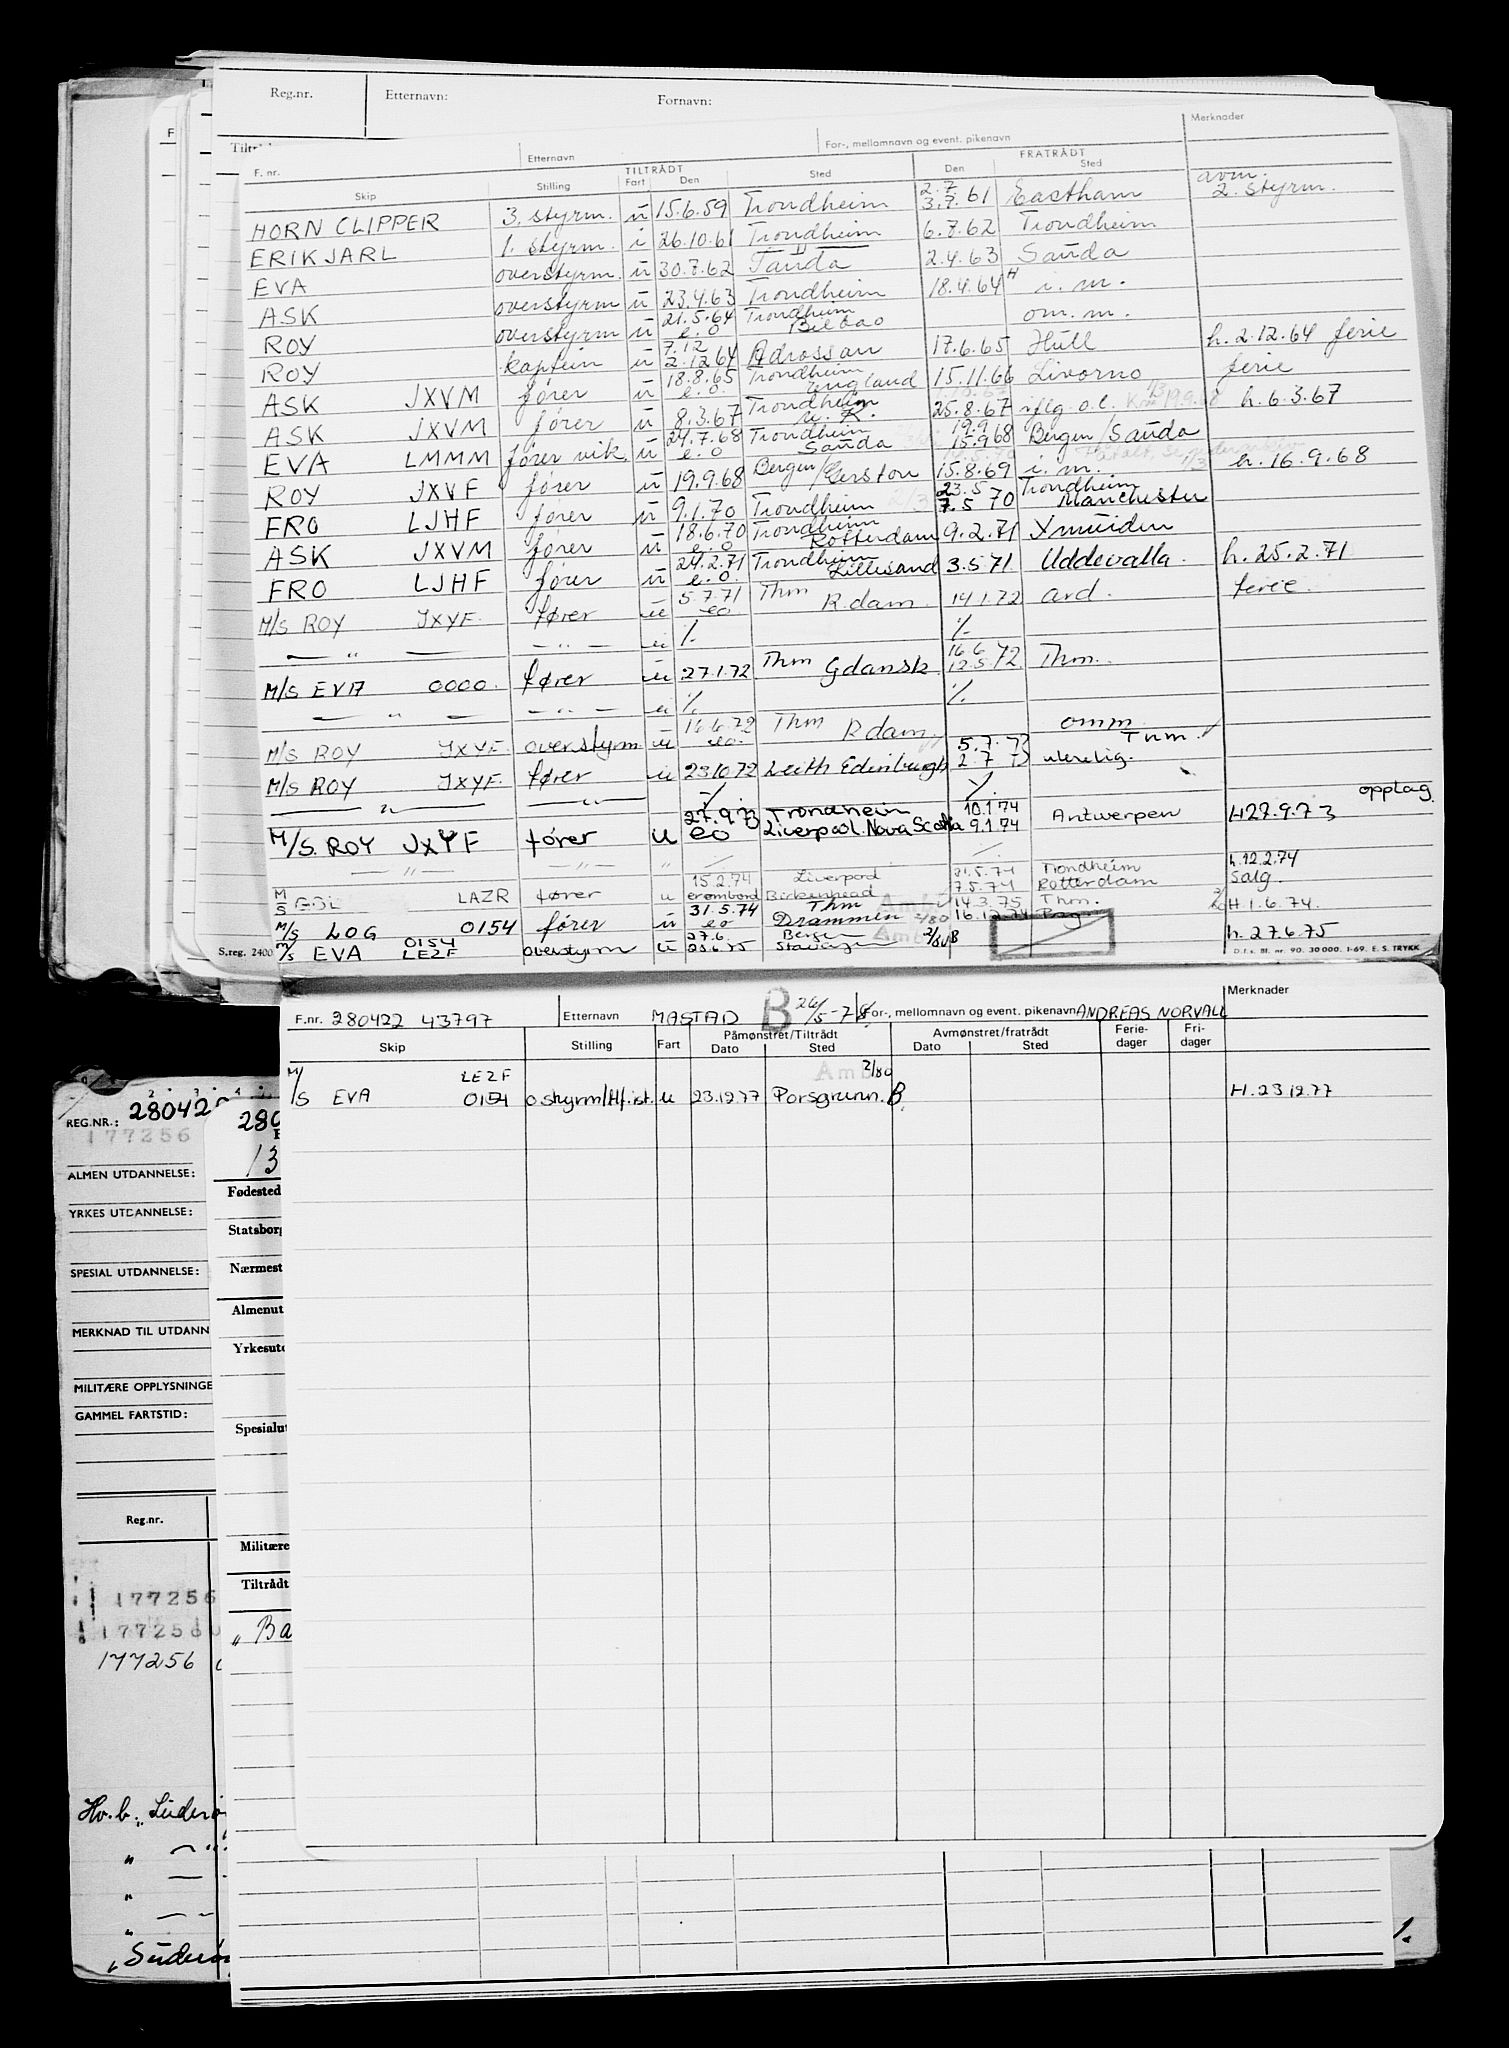 Reg.nr. Etternavn: Fornavn:
Merknader
F. nr. Etternavn For-, mellomnavn og event. pikenavn
TILTRÅDT FRATRÅDT
Skip Stilling Fart Den Sted Den Sted
HORN CLIPPER 3. styrm. u 15.6.59 Trondheim 2.7 3.7.61 Eastham avm. 2. styrm.
ERIK JARL 1. styrm. i 26.10.61 Trondheim 6.8.62 Trondheim
EVA overstyrm. u 30.7.62 " Sauda 2.4.63 Sauda
ASK overstyrm u 23.4.63 Trondheim 18.4.64 H i. m.
ROY overstyrm u 21.5.64 e.o Trondheim Bilbao om. m.
ROY kaptein u 7.12 2.12 64 Adrossan 17.6.65 Hull h. 2.12.64 ferie
ASK JXVM fører u 18.8.65 e.o. Trondheim England 15.11.66 Livorno ferie
ASK JXVM fører u 8.3.67 Trondheim U.K. 25.8.67 iflg. o.l. h. 6.3.67
EVA LMMM fører vik. u 24.7.68 e.o Trondheim Sauda 19.9 15.9 68 Bergen/Sauda
ROY JXVF fører u 19.9.68 Bergen/Gerston 15.8.69 i. m. h. 16.9.68
FRO LJHF fører u 9.1.70 Trondheim 23.5 7.5 70 Trondheim Manchester
ASK JXVM fører u 18.6.70 e.o Trondheim Rotterdam 9.2.71 Ymuiden
FRO LJHF fører u 24.2.71 e.o. Trondheim Lillesand 3.5.71 Uddevalla. h. 25.2.71
M/S ROY JXYF. fører u 5.7.71 eo Thm R.dam. 14.1.72 ard. ferie.
— " — — " — u ./. ./.
M/S EVA 0000. fører u 27.1.72 Thm Gdansk 16.6 12.5.72 Thm.
— " — — " — u ./. ./.
M/S ROY JXYF. overstyrm. u 16.6.72 eo. Thm R.dam. omm.
M/S ROY JXYF. fører u 23.10.72 Leith Edinburgh 5.7.73 2.7.73 Thm. uleselig.
— " — — " — ./. ./. opplag.
M/S. ROY JXYF fører u 27.9.73 eo Trondheim Liverpool. Nova Scotia 10.1.74 9.1.74 Antwerpen H27.9.73
— " — — " — " ./. ./.
M/S LAZR fører u 15.2.74 ombord Liverpool Birkenhead 31.5.74 7.5.74 Trondheim Rotterdam h. 12.2.74 salg.
M/S LOG 0154 fører u 31.5.74 eo Thm Drammen 14.3.75 16.12.74 Thm. H 1.6.74.
M/S EVA 0154 LEZF overstyrm u 27.6. Bergen Stavanger 2/80 B h. 27.6.75
S.reg. 2400 D.f.s. Bl. nr. 90. 30 000. 1-69. E. S. TRYKK
Merknader
F.nr. 280422 43797 Etternavn MASTAD B 26/5-78 For-, mellomnavn og event. pikenavn ANDREAS NORVALL
Skip Stilling Fart Påmønstret/Tiltrådt Dato Sted Avmønstret/fratrådt Dato Sted Ferie-dager Fri-dager
Amb 2/80
M/S EVA LEZF 0154 o styrm/H/ist. u 23.12.77 Porsgrunn. B H. 23.12.77
REG.NR.: 280422
177256
ALMEN UTDANNELSE:
YRKES UTDANNELSE:
SPESIAL UTDANNELSE:
MERKNAD TIL UTDANN
MILITÆRE OPPLYSNINGE
GAMMEL FARTSTID:
Reg.nr.
177256
177256
177256
Hv.b. „Süderø
" — " —
" —
" — —
„Süderø
280
13
Fødested
Statsborg
Nærmest
Almenut
Yrkesutd
Spesialut
Militære
Tiltrådt
„ Ba
1.